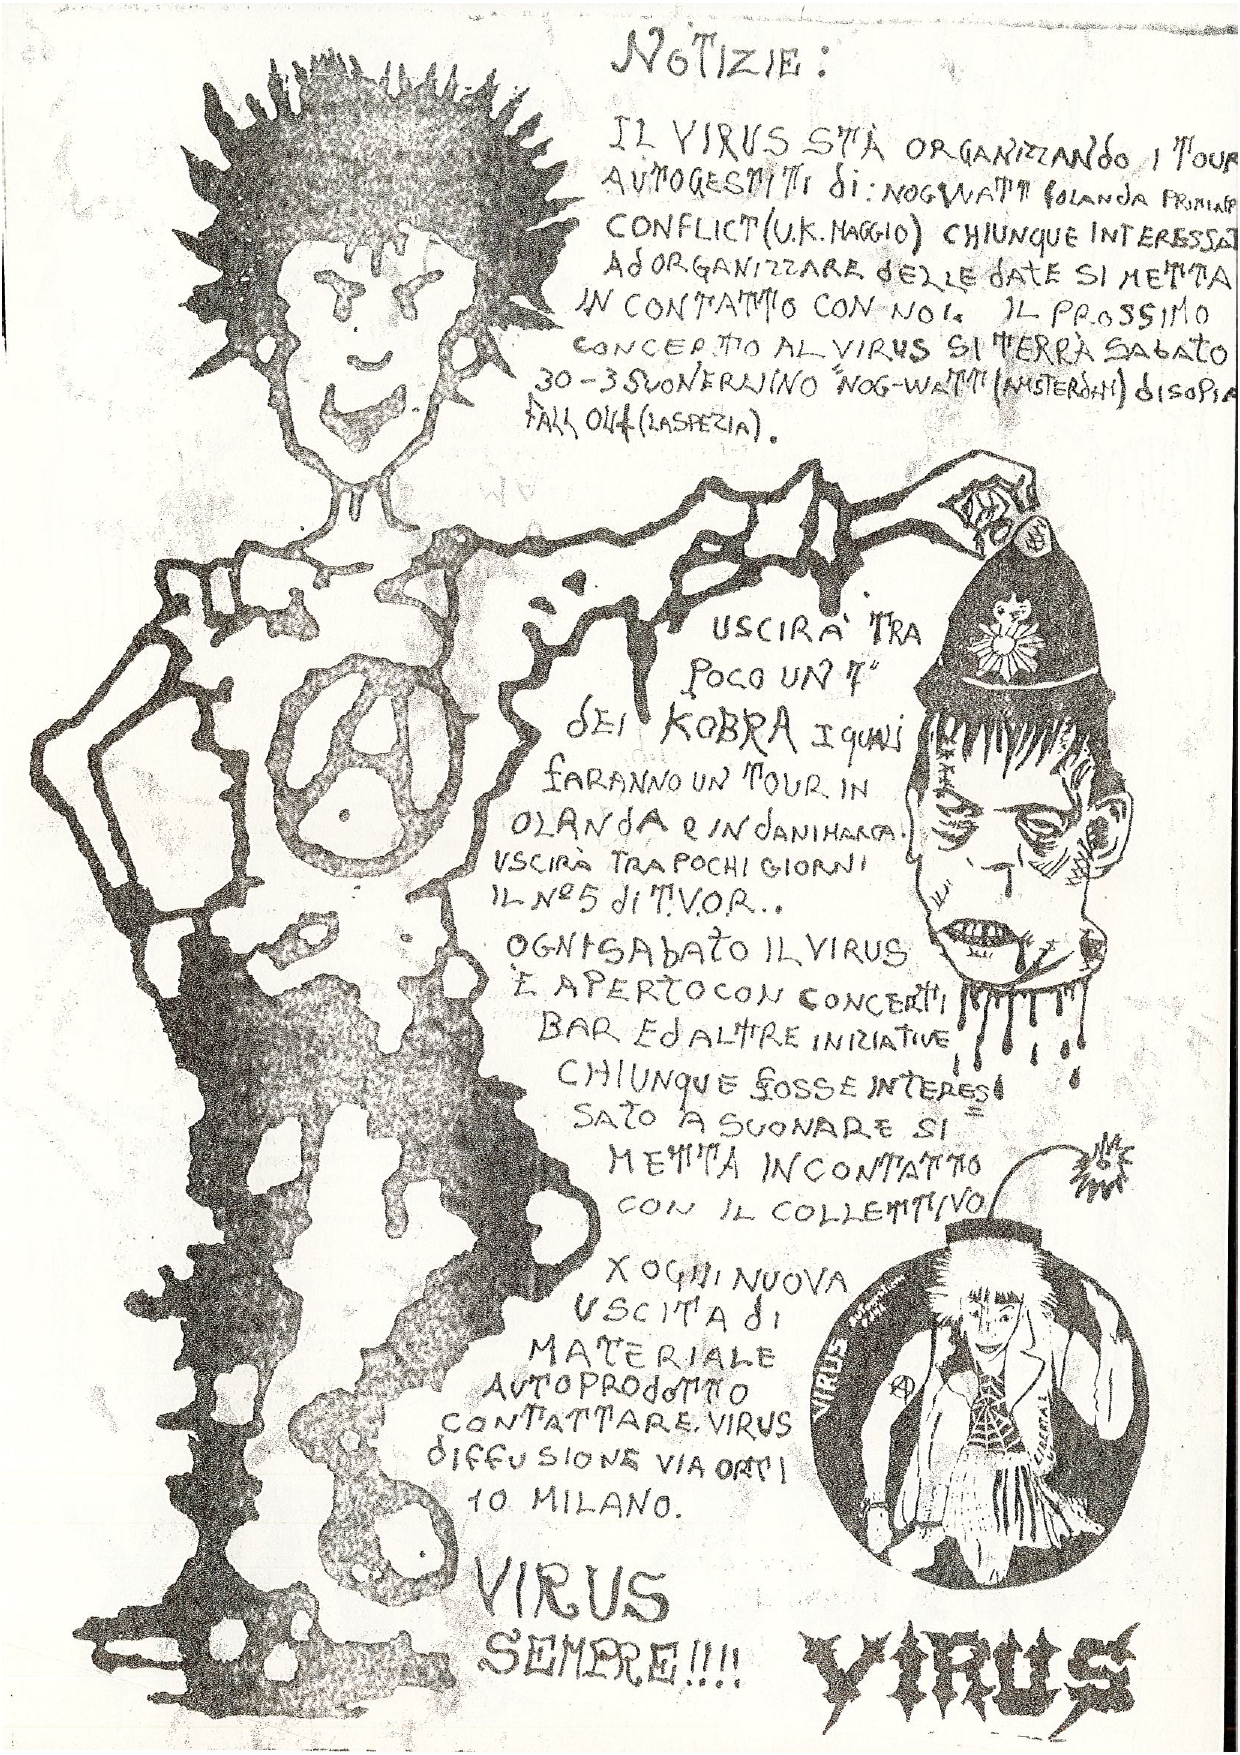 NOTIZIE:
IL VIRUS STÀ ORGANIZZANDO I TOUR
AUTOGESTITI di: NOGWATT (OLANDA
CONFLICT (U.K. MAGGIO) CHIUNQUE INTERESSAT
AD ORGANIZZARE DELLE DATE SI METTA
IN CONTATTO CON NOI. IL PROSSIMO
CONCERTO AL VIRUS SI TERRÀ SABATO
30-3 SUONERANNO "NOG-WATT" (AMSTERDAM)
FALL OUT (LA SPEZIA).
USCIRA' TRA
POCO UN 7"
dEI KOBRA I QUALI
FARANNO UN TOUR IN
OLANDA e IN DANIMARCA.
USCIRÀ TRA POCHI GIORNI
IL Nº5 di T.V.O.R..
OGNI SABATO IL VIRUS
'E APERTO CON CONCERTI
BAR Ed ALTRE INIZIATIVE
CHIUNQUE FOSSE INTERES
SATO A SUONARE SI
METTA IN CONTATTO
CON IL COLLETTIVO
X OGNI NUOVA
USCITA di
MATERIALE
AUTOPRODOTTO
CONTATTARE VIRUS
DIFFUSIONE VIA ORTI
10 MILANO.
VIRUS
SEMPRE!!!!
VIRUS
VIRUS